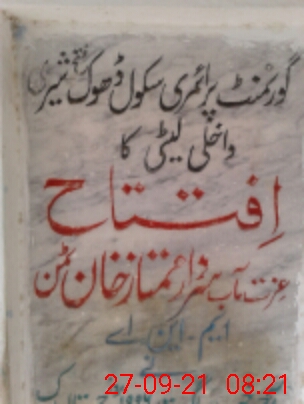 گورنمنٹ پرائمری سکول ڈھوک فتح شیر
داخلی لیٹی کا
اِفتتاح
عزت مآب سردار ممتاز خان ٹمن
ایم۔ این اے
نے
27-09-21 08:21